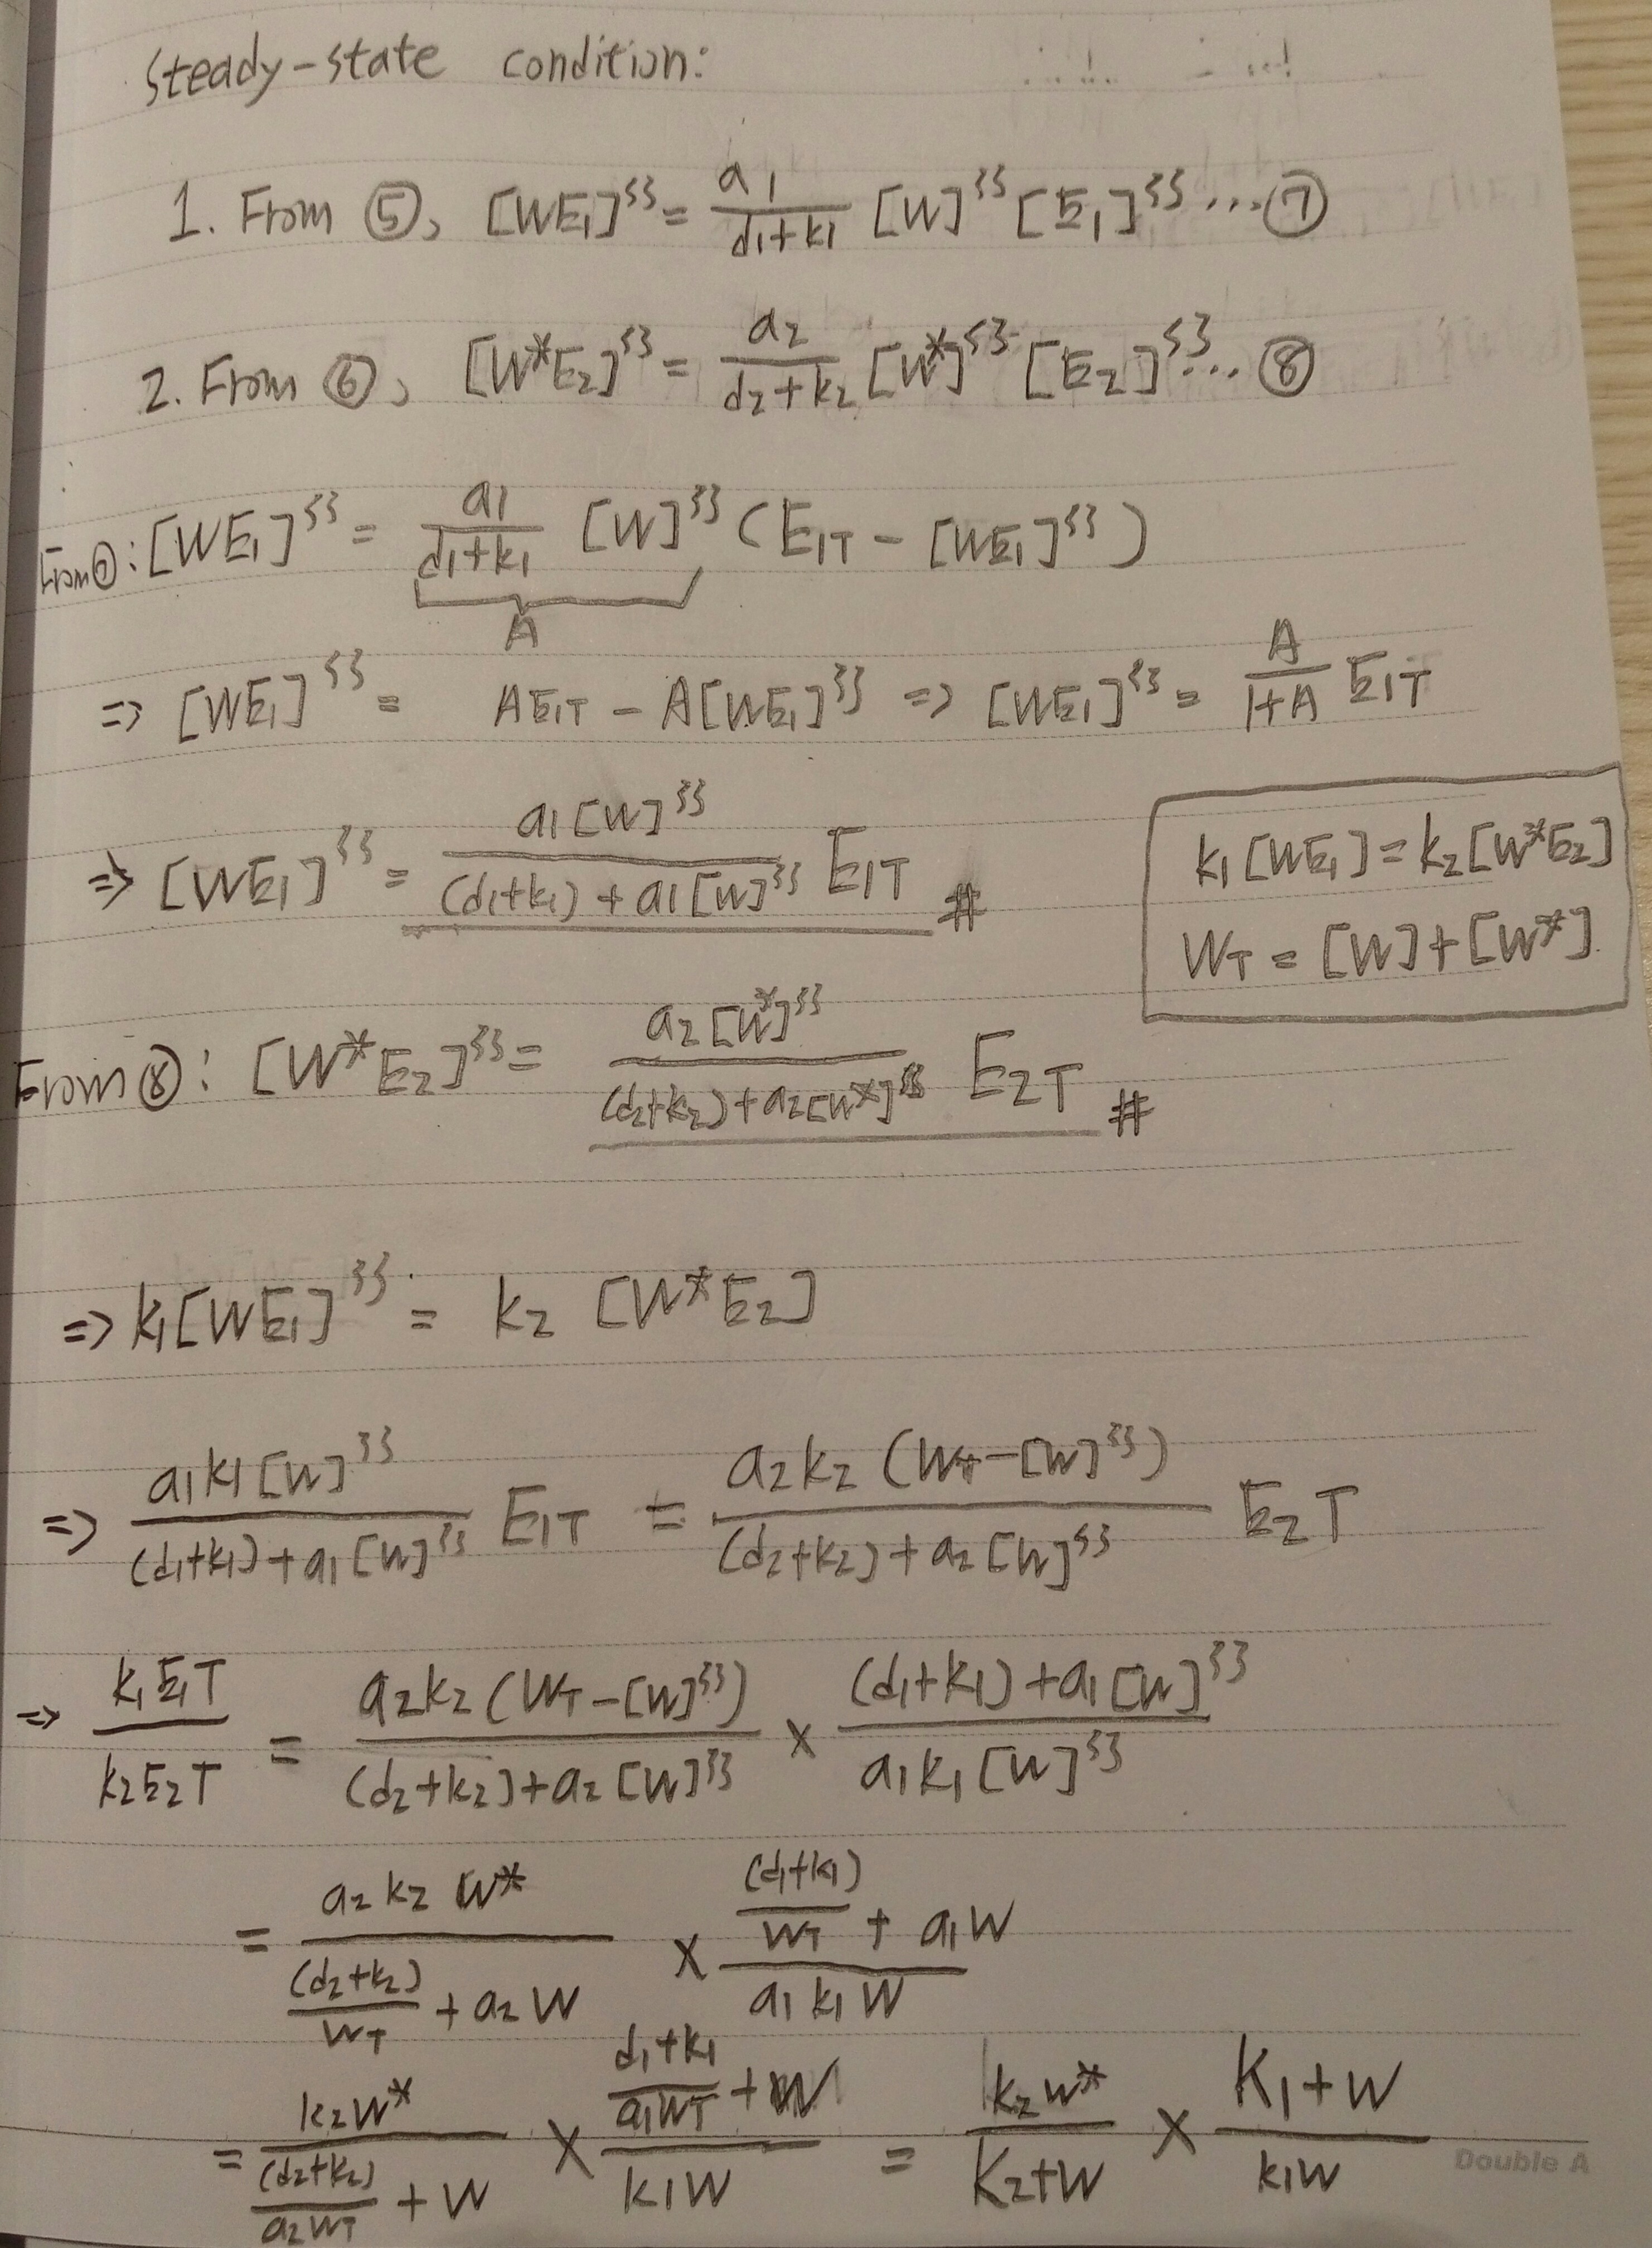 Steady-state condition:
1. From ⑤, [WE₁]^ss = a₁/(d₁+k₁) [W]^ss [E₁]^ss ... ⑦
2. From ⑥, [W*E₂]^ss = a₂/(d₂+k₂) [W*]^ss [E₂]^ss ... ⑧
From ⑦: [WE₁]^ss = a₁/(d₁+k₁) [W]^ss (E₁T - [WE₁]^ss)
A
=> [WE₁]^ss = AE₁T - A[WE₁]^ss => [WE₁]^ss = A/(1+A) E₁T
=> [WE₁]^ss = a₁[W]^ss/((d₁+k₁) + a₁[W]^ss) E₁T #
k₁[WE₁] = k₂[W*E₂]
W_T = [W] + [W*]
From ⑧: [W*E₂]^ss = a₂[W*]^ss/((d₂+k₂) + a₂[W*]^ss) E₂T #
=> k₁[WE₁]^ss = k₂ [W*E₂]
=> a₁k₁[W]^ss/((d₁+k₁) + a₁[W]^ss) E₁T = a₂k₂(W_T - [W]^ss)/((d₂+k₂) + a₂[W]^ss) E₂T
=> k₁E₁T/k₂E₂T = a₂k₂(W_T - [W]^ss)/((d₂+k₂) + a₂[W]^ss) × ((d₁+k₁) + a₁[W]^ss)/(a₁k₁[W]^ss)
= a₂k₂W*/((d₂+k₂)/W_T + a₂W) × ((d₁+k₁)/W_T + a₁W)/(a₁k₁W)
= k₂W*/((d₂+k₂)/(a₂W_T) + W) × ((d₁+k₁)/(a₁W_T) + W)/(k₁W) = k₂W*/(K₂+W) × (K₁+W)/(k₁W)
Double A